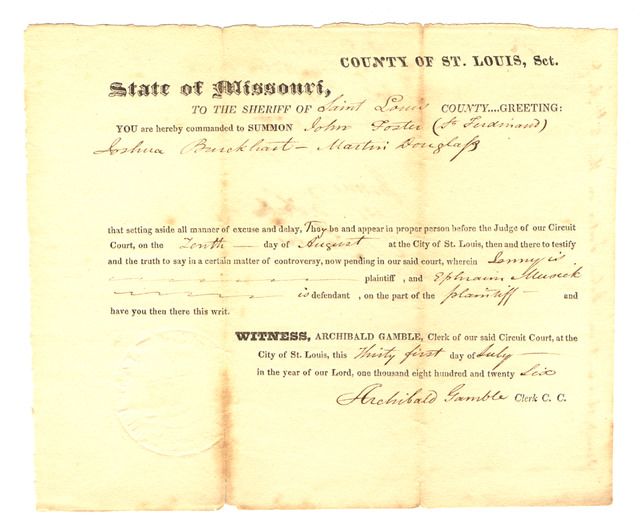 COUNTY OF ST. LOUIS, Sct.
State of Missouri,
TO THE SHERIFF OF Saint Louis COUNTY....GREETING:
YOU are hereby commanded to SUMMON John Foster (St Ferdinand)
Joshua Burckhart – Martin Douglass
that setting aside all manner of excuse and delay, They be and appear in proper person before the Judge of our Circuit
Court, on the Tenth — day of August at the City of St. Louis, then and there to testify
and the truth to say in a certain matter of controversy, now pending in our said court, wherein is
plaintiff , and Ephraim Musick
is defendant , on the part of the plaintiff — and
have you then there this writ.
WITNESS, ARCHIBALD GAMBLE, Clerk of our said Circuit Court, at the
City of St. Louis, this Thirty first day of July —
in the year of our Lord, one thousand eight hundred and twenty Six
Archibald Gamble Clerk C. C.